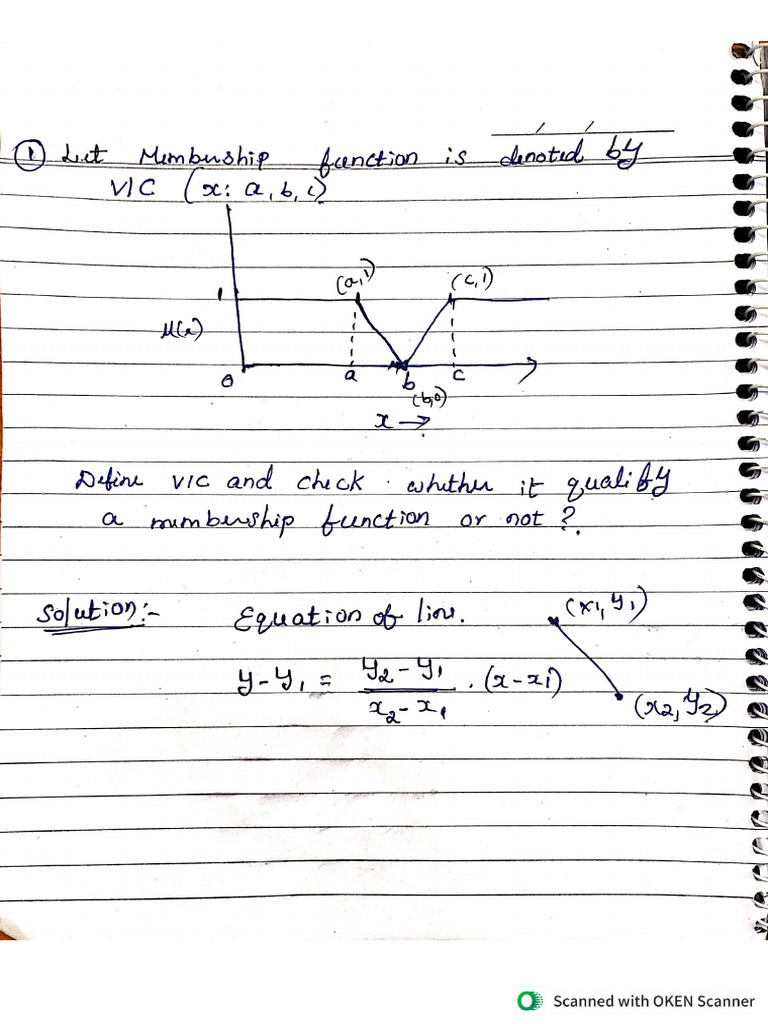 ① Let Membership function is denoted by
VIC (x: a, b, c)
(a,1) (c,1)
1
μ(x)
0 a b c
(b,0)
x →
Define VIC and check whether it qualify
a membership function or not ?
Solution:- Equation of line.
(x1, y1)
y - y1 = y2 - y1 / x2 - x1 . (x - x1)
(x2, y2)
Scanned with OKEN Scanner